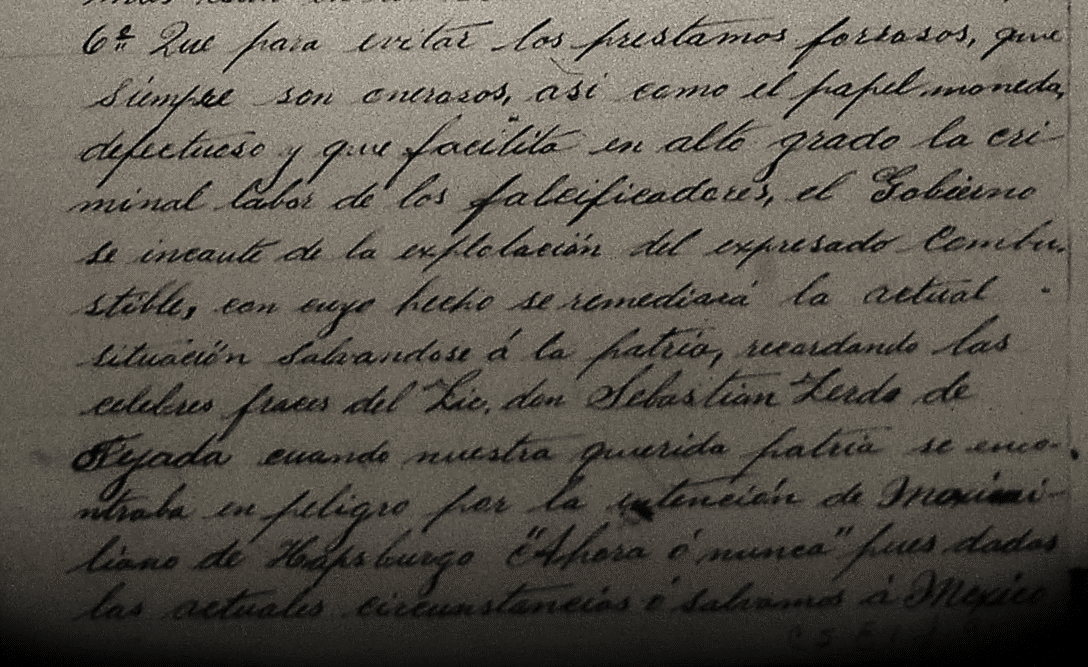 6ª Que para evitar los prestamos forzosos, que
siempre son onerosos, asi como el papel moneda,
defectuoso y que facilita en alto grado la cri-
minal labor de los falcificadores, el Gobierno
se incaute de la explotación del expresado Combu-
stible, con cuyo hecho se remediará la actual
situación salvandose á la patria, recordando las
celebres fraces del Lic. don Sebastian Lerdo de
Tejada cuando nuestra querida patria se enco-
ntraba en peligro por la intención de Maximi-
liano de Hapsburgo "Ahora ó nunca" pues dadas
las actuales circunstancias ó salvamos á Mexico